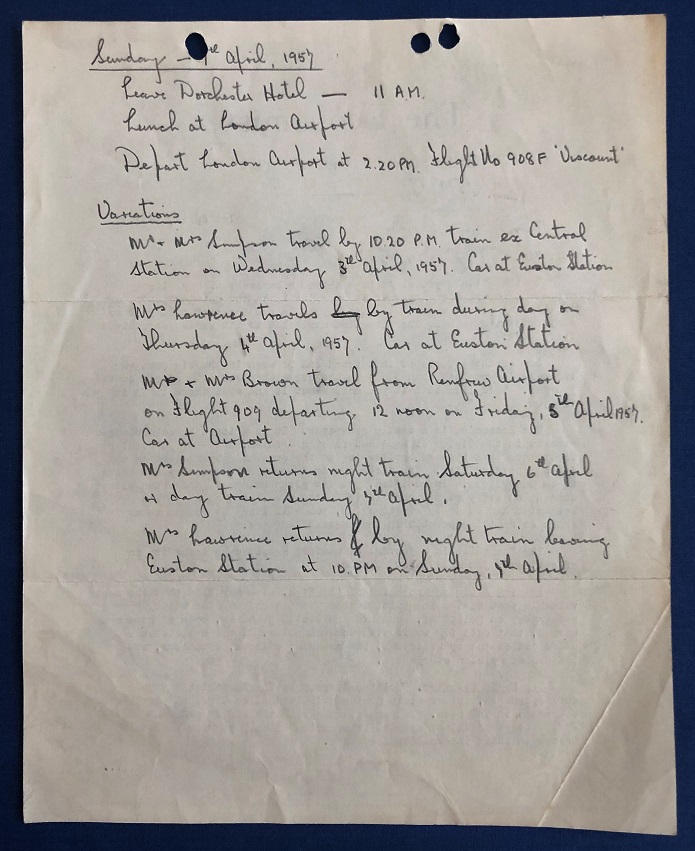 Sunday – 7th April, 1957
Leave Dorchester Hotel — 11 A.M.
Lunch at London Airport
Depart London Airport at 2.20 P.M. Flight No 908F 'Viscount'
Variations
Mr + Mrs Simpson travel by 10.20 P.M. train ex Central
Station on Wednesday 3rd April, 1957. Car at Euston Station
Mrs Lawrence travels by train during day on
Thursday 4th April, 1957. Car at Euston Station
Mr + Mrs Brown travel from Renfrew Airport
on Flight 909 departing 12 noon on Friday, 5th April 1957.
Car at Airport.
Mrs Simpson returns night train Saturday 6th April
or day train Sunday 7th April.
Mrs Lawrence returns by night train leaving
Euston Station at 10 PM on Sunday, 7th April.